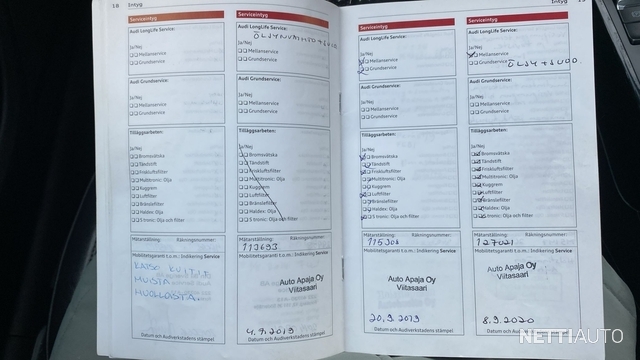 18
Intyg
Serviceintyg
Audi LongLife Service:
Ja/Nej
Mellanservice
Grundservice
Audi Grundservice:
Ja/Nej
Mellanservice
Grundservice
Tilläggsarbeten:
Ja/Nej
Bromsvätska
Tändstift
Friskluftsfilter
Multitronic: Olja
Kuggrem
Luftfilter
Bränslefilter
Haldex: Olja
S tronic: Olja och filter
Mätarställning: Räkningsnummer:
Mobilitetsgaranti t.o.m.: Indikering Service
KATSO KUITIT
MUISTA
HUOLLOISTA.
Datum och Audiverkstadens stämpel
Serviceintyg
Audi LongLife Service:
ÖLJYNVAIHTO +SUOD
Ja/Nej
Mellanservice
Grundservice
Audi Grundservice:
Ja/Nej
Mellanservice
Grundservice
Tilläggsarbeten:
Ja/Nej
Bromsvätska
Tändstift
Friskluftsfilter
Multitronic: Olja
Kuggrem
Luftfilter
Bränslefilter
Haldex: Olja
S tronic: Olja och filter
Mätarställning: Räkningsnummer:
113693
Mobilitetsgaranti t.o.m.: Indikering Service
Auto Apaja Oy
Viitasaari
4.9.2019
Datum och Audiverkstadens stämpel
Intyg
19
Serviceintyg
Audi LongLife Service:
Ja/Nej
Mellanservice
Grundservice
Audi Grundservice:
Ja/Nej
Mellanservice
Grundservice
Tilläggsarbeten:
Ja/Nej
Bromsvätska
Tändstift
Friskluftsfilter
Multitronic: Olja
Kuggrem
Luftfilter
Bränslefilter
Haldex: Olja
S tronic: Olja och filter
Mätarställning: Räkningsnummer:
Mobilitetsgaranti t.o.m.: Indikering Service
Auto Apaja Oy
Viitasaari
20.9.2019
Datum och Audiverkstadens stämpel
Serviceintyg
Audi LongLife Service:
Ja/Nej
Mellanservice
Grundservice ÖLJY+SUOD
Audi Grundservice:
Ja/Nej
Mellanservice
Grundservice
Tilläggsarbeten:
Ja/Nej
Bromsvätska
Tändstift
Friskluftsfilter
Multitronic: Olja
Kuggrem
Luftfilter
Bränslefilter
Haldex: Olja
S tronic: Olja och filter
Mätarställning: Räkningsnummer:
127021
Mobilitetsgaranti t.o.m.: Indikering Service
Auto Apaja Oy
Viitasaari
8.9.2020
Datum och Audiverkstadens stämpel
NETTIAUTO